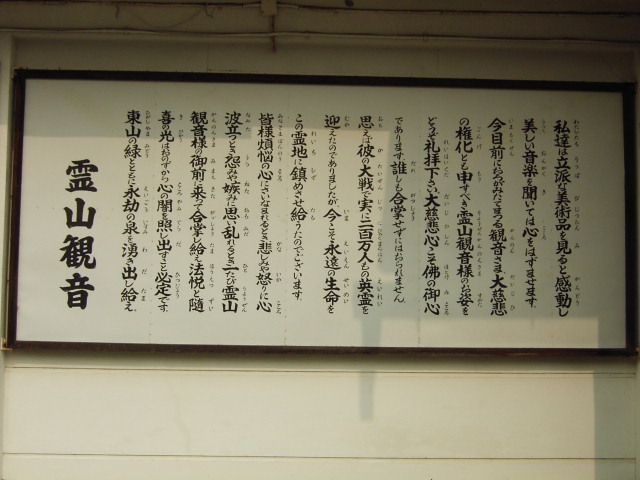 私達は立派な美術品を見ると感動し
美しい音楽を聞いては心をはずませます。
今目前におがみたてまつる観音さま大慈悲
の権化とも申すべき霊山観音様のお姿を
どうぞ礼拝下さい。大慈悲心こそ佛の御心
であります。誰しも合掌せずにはおられません
思えば彼の大戦で実に二百万人もの英霊を
迎えたのでありましたが、今こそ永遠の生命を
この霊地に鎮めさせ給うたのでございます。
皆様煩悩の心にさいなまれるとき悲しみや怒りに心
波立つとき怨みや嫉みに思い乱れるとき一たび霊山
観音様の御前に来って合掌し給え法悦と随
喜の光はおのずから心の闇を照し出すこと必定です。
東山の緑とともに永劫の泉を湧き出し給え。
霊山観音